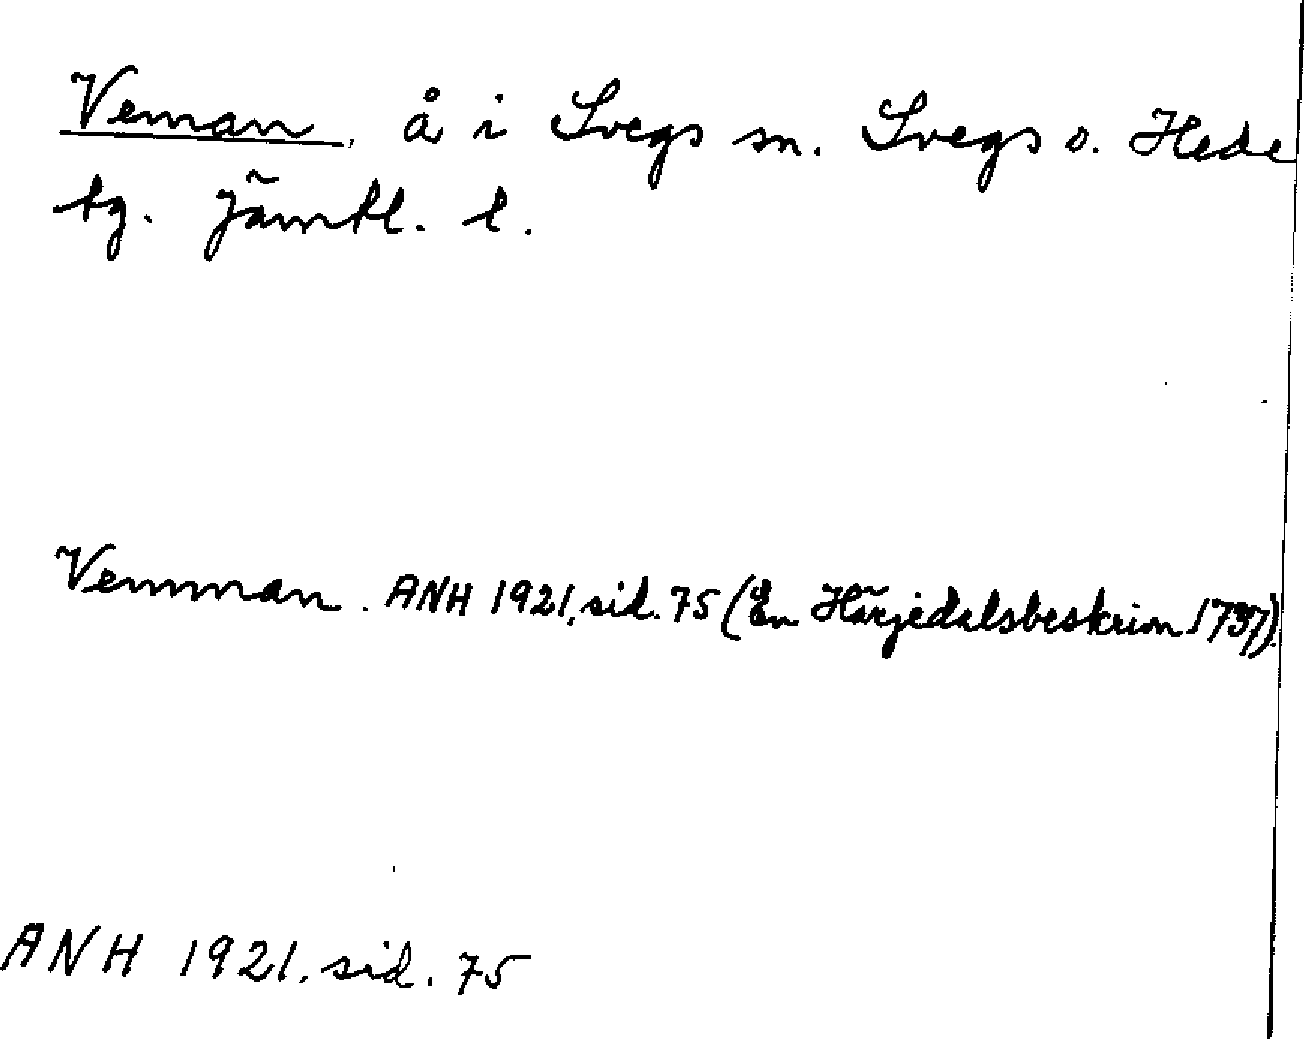 Veman, å i Svegs sn. Svegs o. Hede
tg. Jämtl. l.
Vemman. ANH 1921, sid. 75 (En Härjedalsbeskrivn 1737).
ANH 1921. sid. 75